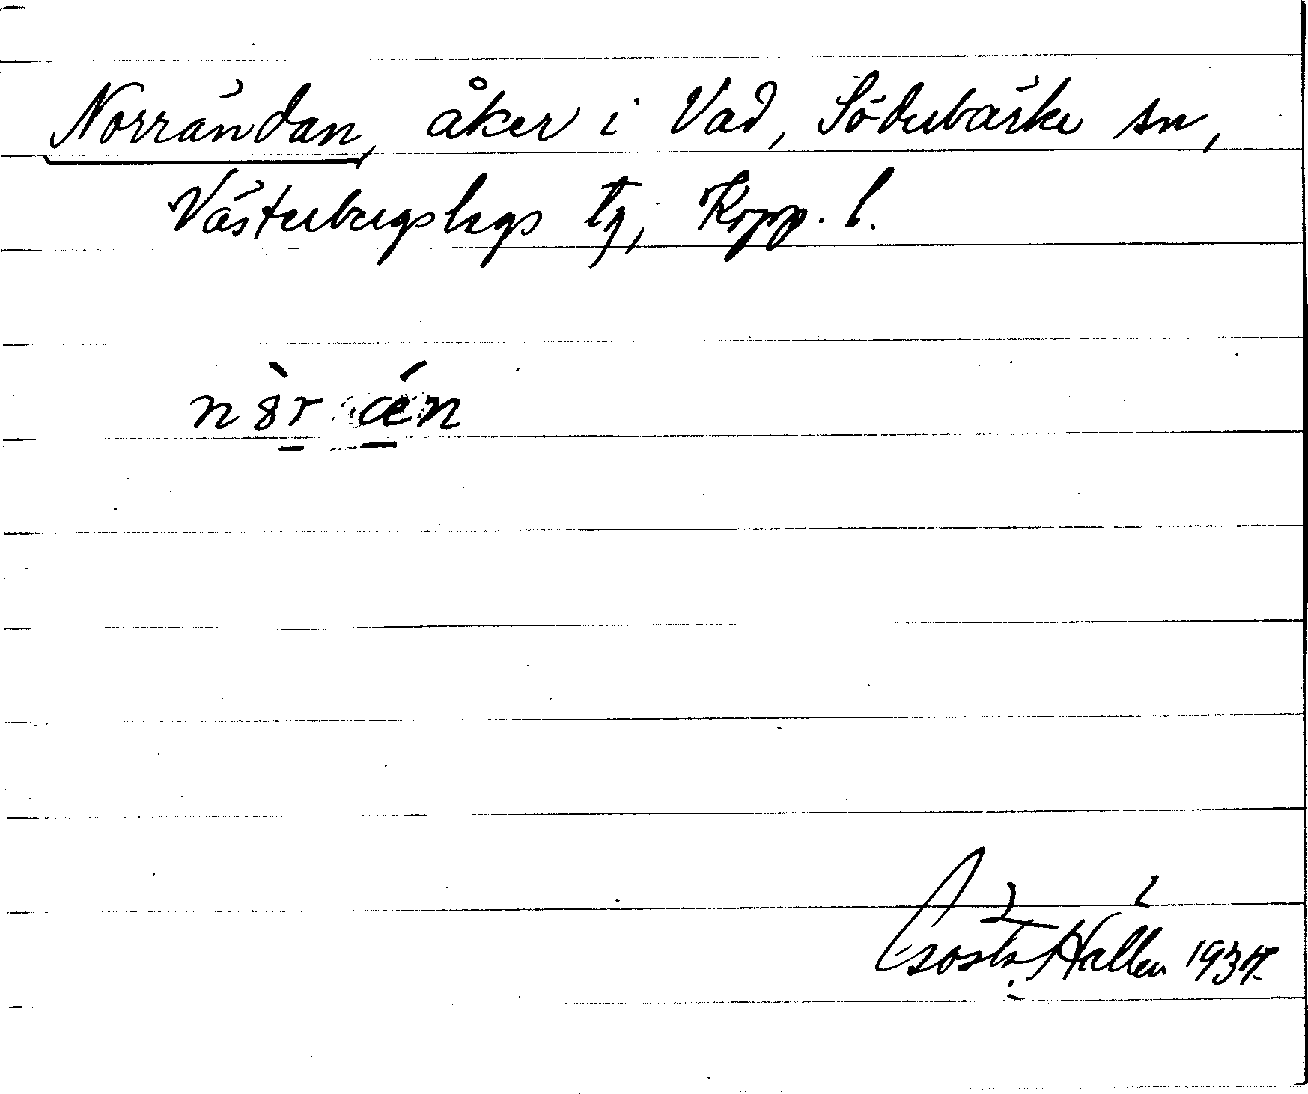 Norrändan, åker i Vad, Söderbärke sn,
Västerbergslags tg, Kopp. l.
Gösta Hallén 1934.